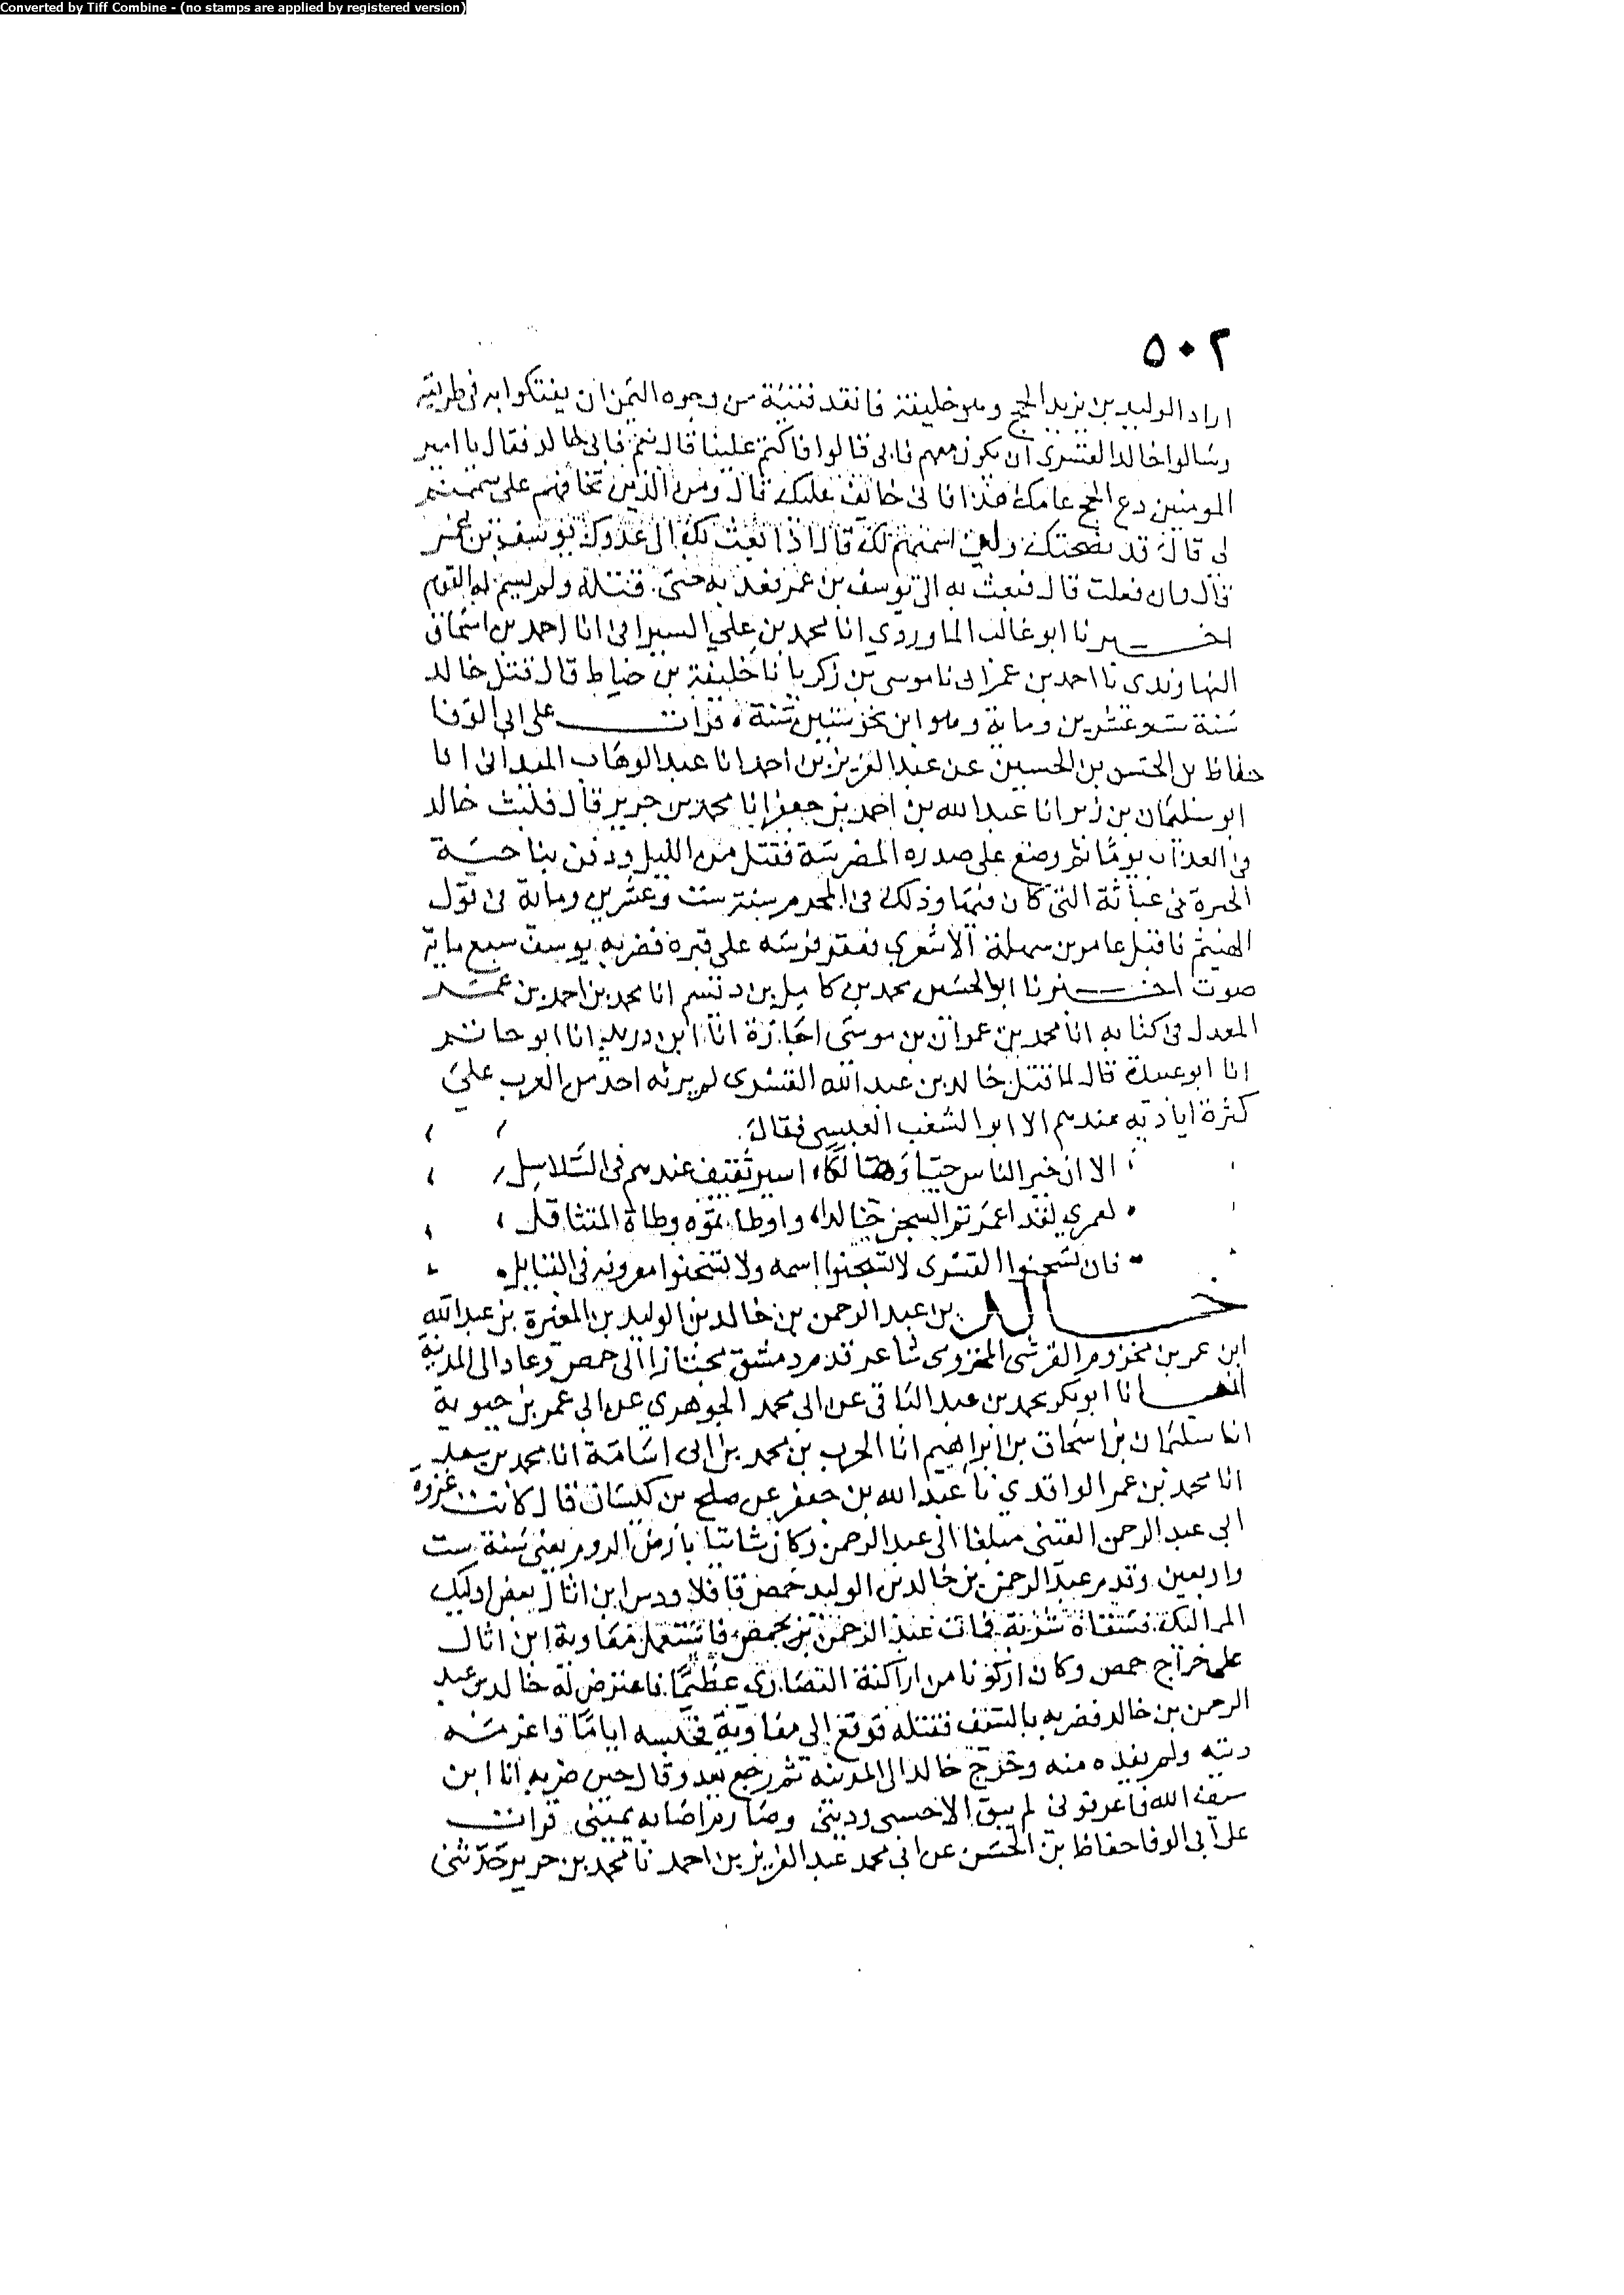 Converted by Tiff Combine - (no stamps are applied by registered version)
٥٠٢
اراد الوليد بن يزيد الحج وهو خليفة فاتعد فتية من وجوه اليمن ان يفتكوا به في طريقه
وسالوا خالد القسري ان يكون معهم فابى قالوا فاكتم علينا قال نعم فاتى خالد فقال يا امير
المومنين دع الحج عامك هذا فاني خائف عليك قال ومن الذين تخافهم علي سمهم
لي قال قد نصحتك ولن اسميهم لك قال اذا ابعث بك الى عدوك يوسف بن عمر
قال وان فعلت قال فبعث به الى يوسف بن عمر فعذبه حتى قتله ولم يسم له القوم
اخبرنا ابو غالب الماوردي انا محمد بن علي السيرافي انا احمد بن اسحاق
النهاوندي نا احمد بن عمران نا موسى بن زكريا نا خليفة بن خياط قال قتل خالد
سنة ست وعشرين وماية وهو ابن نحو ستين سنة قرات على ابي الوفا
حفاظ بن الحسن بن الحسين عن عبد العزيز بن احمد انا عبد الوهاب الميداني انا
ابو سليمان بن زبر انا عبد الله بن احمد بن جعفر انا محمد بن جرير قال فلبث خالد
في العذاب يوما ثم وضع على صدره المضرسة فقتل من الليل ودفن بناحية
الحيرة في عباته التي كان فيها وذلك في المحرم سنة ست وعشرين وماية في قول
الهيثم فاقبل عامر بن سهلة الاشعري فعقر فرسه على قبره فضربه يوسف سبع ماية
صوت اخبرنا ابو الحسين محمد بن كامل بن ديسم انا محمد بن احمد بن محمد
المعدل في كتابه انا محمد بن عمران بن موسى اجازة انا ابن دريد انا ابو حاتم
انا ابو عبيدة قال لما قتل خالد بن عبد الله القسري لم يرثه احد من العرب على
كثرة اياديه عندهم الا ابو الشغب العبسي فقال
الا ان خير الناس حيا وهالكا اسير ثقيف عندهم في السلاسل
لعمري لقد اعمرتم السجن خالدا واوطاتموه وطاة المتثاقل
فان تسجنوا القسري لا تسجنوا اسمه ولا تسجنوا معروفه في القبايل
خالد بن عبد الرحمن بن خالد بن الوليد بن المغيرة بن عبد الله
ابن عمر بن مخزوم القرشي المخزومي شاعر قدم دمشق مجتازا الى حمص وعاد الى المدينة
انبانا ابو بكر محمد بن عبد الباقي عن ابي محمد الجوهري عن ابي عمر بن حيوية
انا سليمان بن اسحاق بن ابراهيم انا الحرب بن محمد بن ابي اسامة انا محمد بن سعد
انا محمد بن عمر الواقدي نا عبد الله بن جعفر عن صلح بن كيسان قال كانت غزوة
ابي عبد الرحمن القيني مبلغا الى عبد الرحمن وكان شاتيا بارض الروم يعني سنة ست
واربعين وقدم عبد الرحمن بن خالد بن الوليد حمص قافلا ودس ابن اثال بعض اوليك
المماليك فسقاه شربة فمات عبد الرحمن بحمص فاستعمل معاوية ابن اثال
على خراج حمص وكان اركونا من اراكنة النصارى عظيما فاعترض له خالد بن عبد
الرحمن بن خالد فضربه بالسيف فقتله فوقع الى معاوية فحبسه اياما واغرمه
ديته ولم يقده منه وخرج خالد الى المدينة ثم رجع بعد وقال حين ضربه انا ابن
سيف الله فاعرفوني لم يبق الا حسبي وديني وصارم اصابه يميني قرات
على ابي الوفا حفاظ بن الحسن عن ابي محمد عبد العزيز بن احمد نا محمد بن جرير حدثني